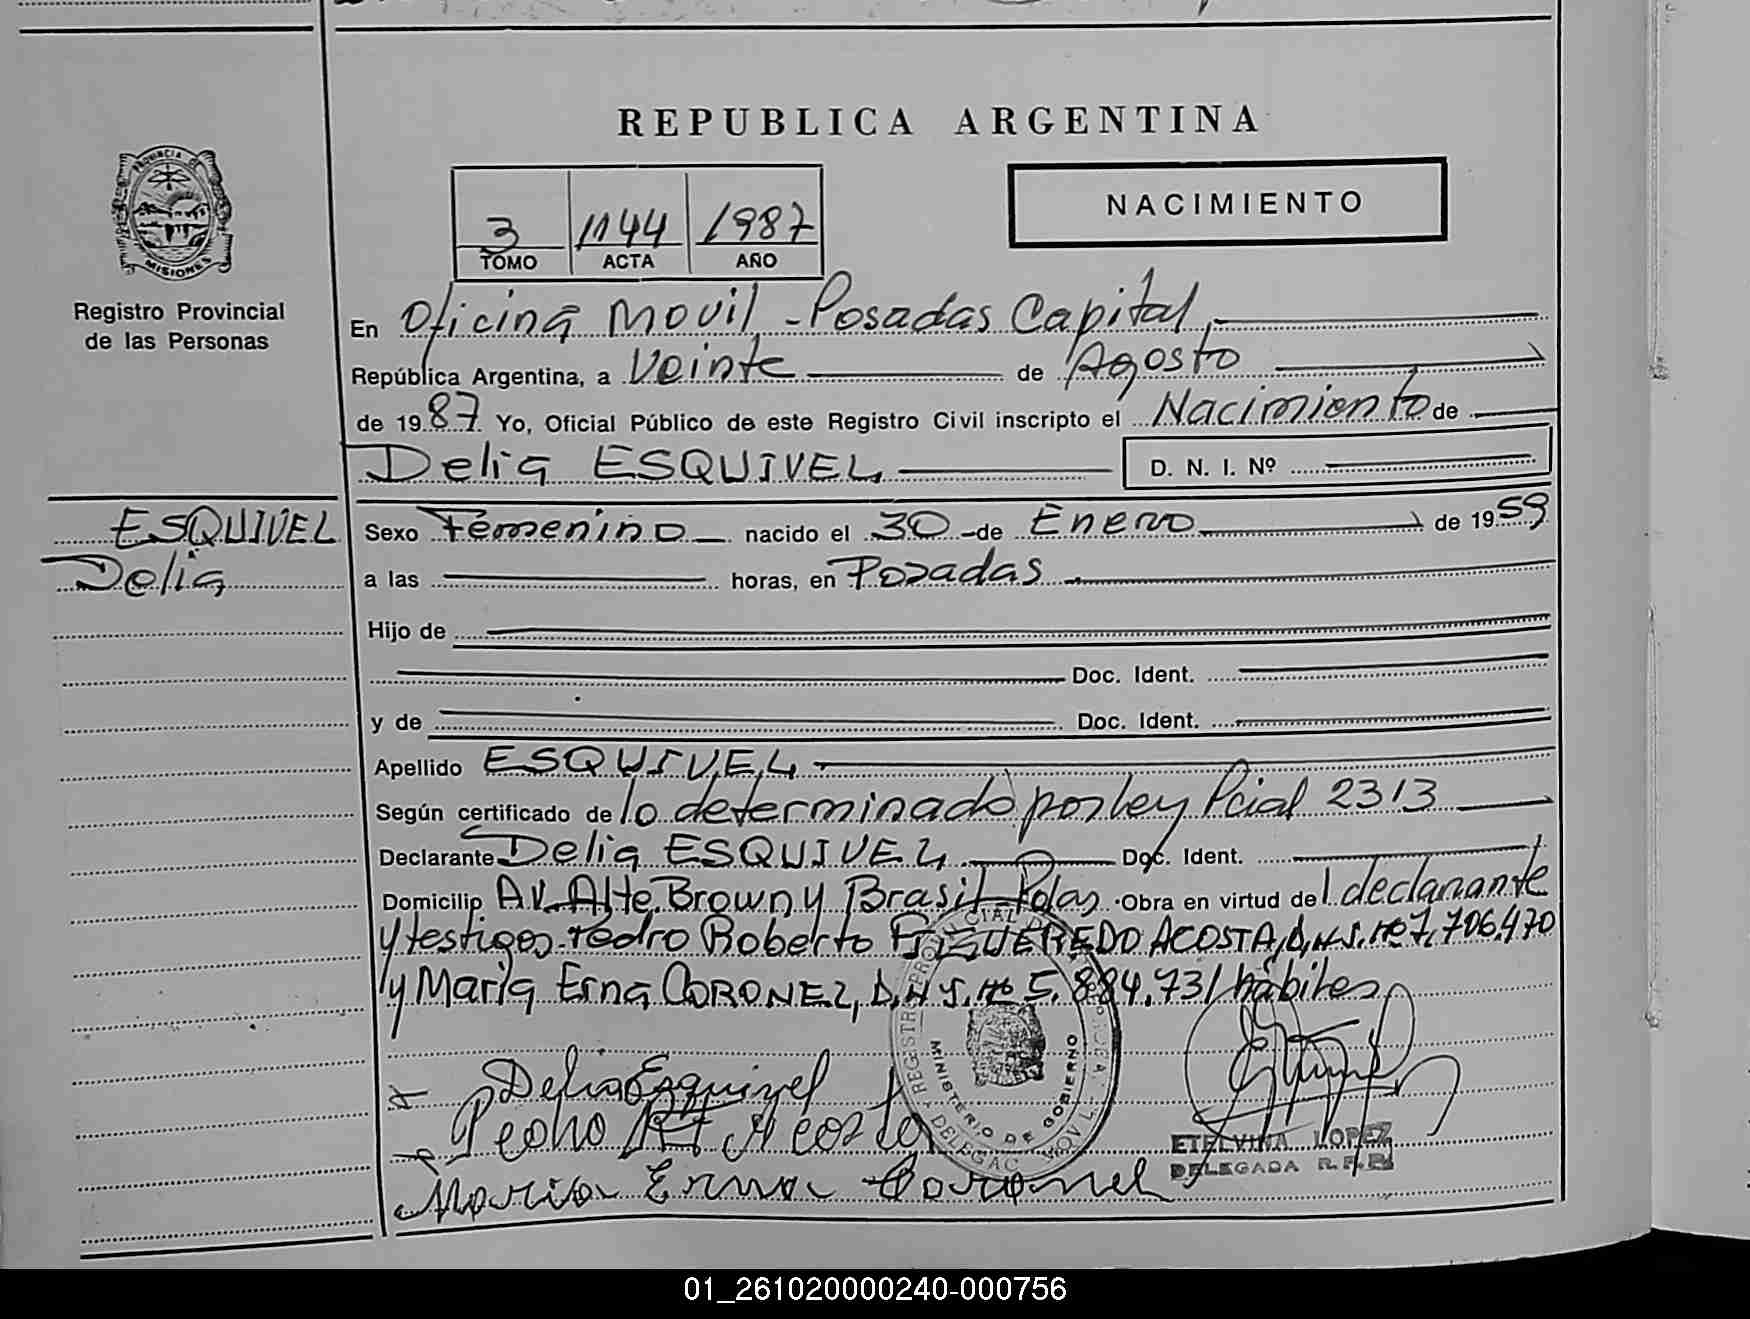 REPUBLICA ARGENTINA
PROVINCIA DE
MISIONES
Registro Provincial
de las Personas
3 1144 1987
TOMO ACTA AÑO
NACIMIENTO
En Oficina Movil - Posadas Capital,
República Argentina, a Veinte de Agosto
de 1987 Yo, Oficial Público de este Registro Civil inscripto el Nacimiento de
Delia ESQUIVEL D. N. I. Nº
ESQUIVEL
Delia
Sexo Femenino nacido el 30 de Enero de 1959
a las horas, en Posadas
Hijo de
Doc. Ident.
y de Doc. Ident.
Apellido ESQUIVEL
Según certificado de lo determinado por ley Pcial 2313
Declarante Delia ESQUIVEL Doc. Ident.
Domicilio AV. Alte. Brown y Brasil - Pdas. Obra en virtud del declarante
y testigos Pedro Roberto FIGUEREDO ACOSTA, D.N.I. Nº 7.706.470
y Maria Erna CORONEL, D.N.I. Nº 5.884.731 hábiles
Delia Esquivel
Pedro Acosta
Maria Erna Coronel
MINISTERIO DE GOBIERNO
ETELVINA LOPEZ
DELEGADA R.P.P.
01_261020000240-000756